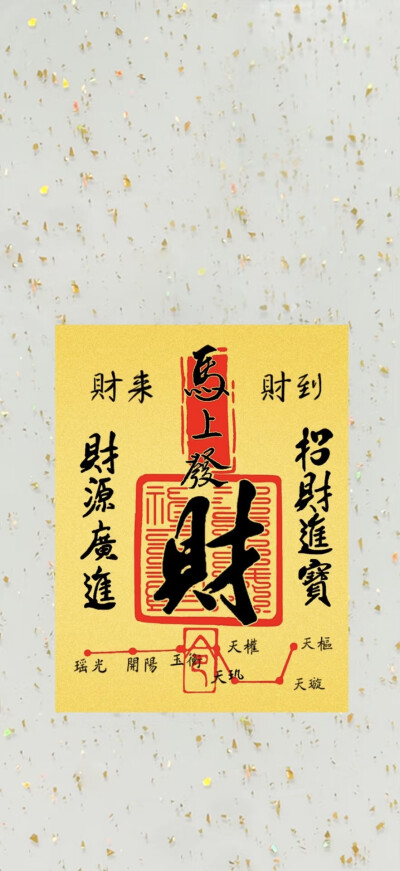 財来
財到
馬上發財
招財進寶
財源廣進
瑶光
開陽
玉衡
天權
天玑
天璇
天樞